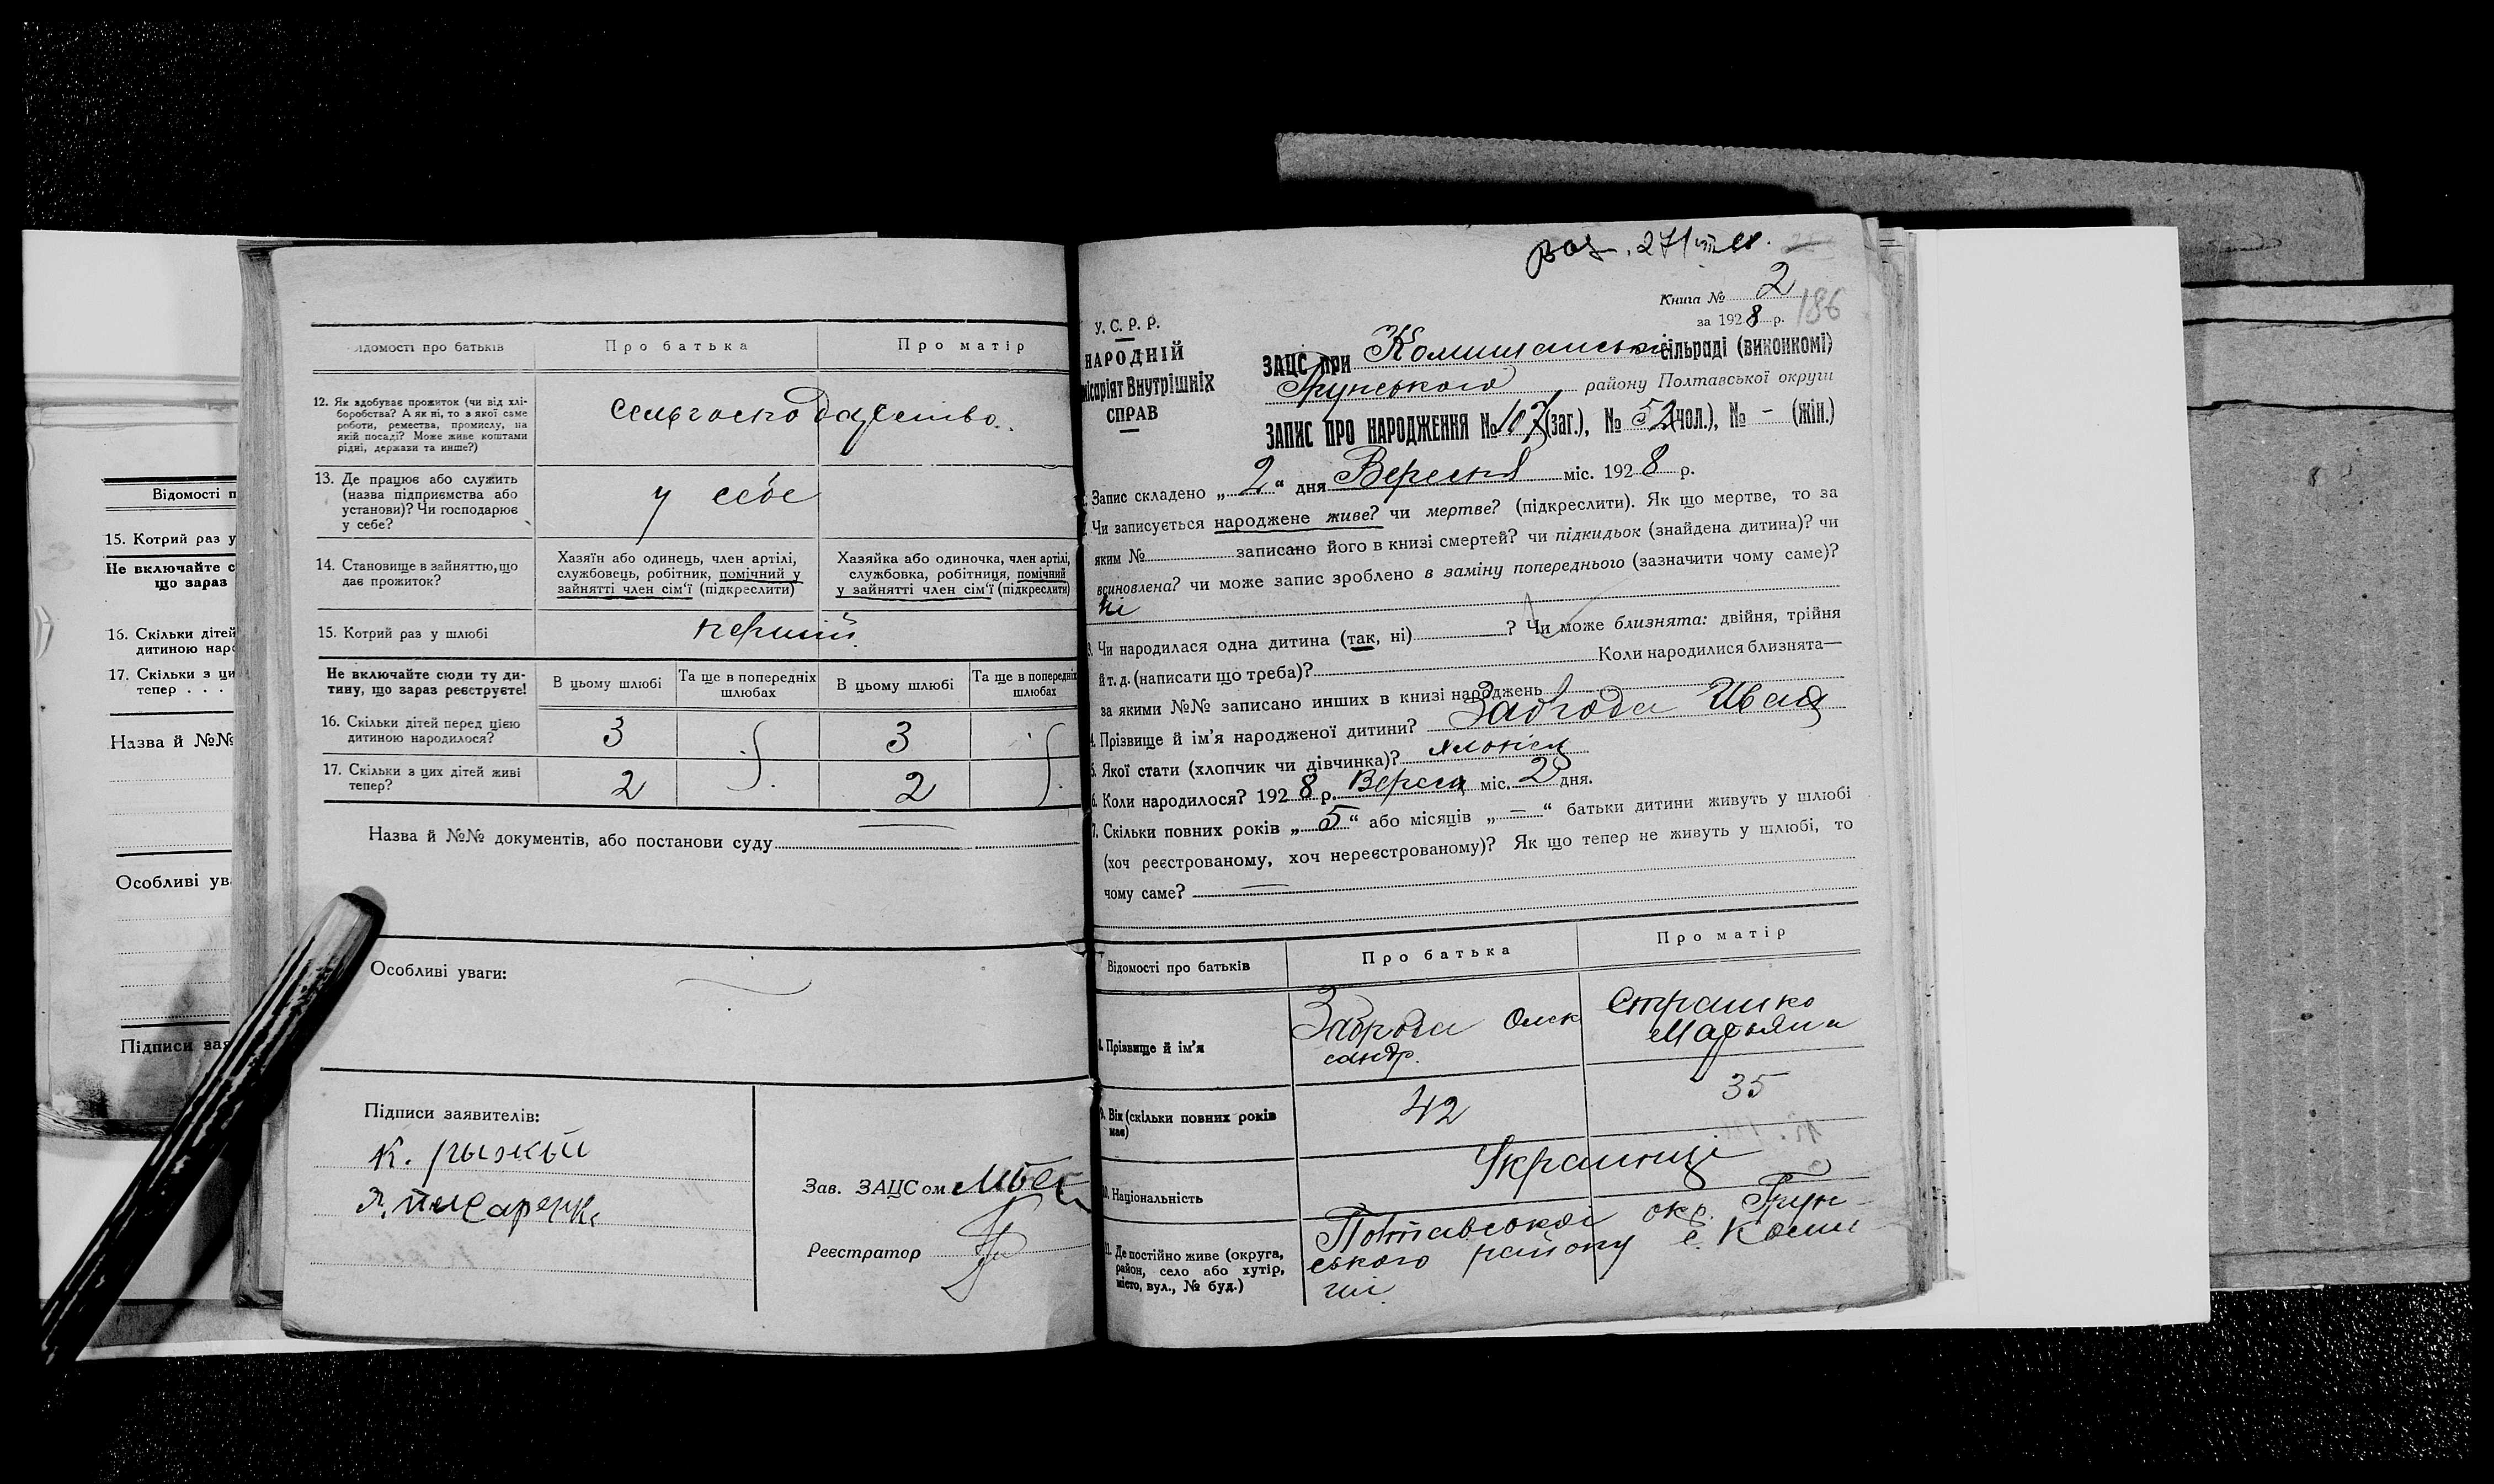 Відомості п
15. Котрий раз у
Не включайте с
що зараз
16. Скільки дітей
дитиною наро
17. Скільки з ци
тепер . . .
Назва й №№
Особливі ув
Підписи зая
ідомості про батьків
Про батька
Про матір
12. Як здобуває прожиток (чи від хлі-
боробства? А як ні, то з якої саме
роботи, ремества, промислу, на
якій посаді? Може живе коштами
рідні, держави та инше?)
13. Де працює або служить
(назва підприємства або
установи)? Чи господарює
у себе?
у себе
14. Становище в зайняттю, що
дає прожиток?
Хазяїн або одинець, член артілі,
службовець, робітник, помічний у
зайнятті член сім'ї (підкреслити)
Хазяйка або одиночка, член артілі,
службовка, робітниця, помічний
у зайнятті член сім'ї (підкреслити)
15. Котрий раз у шлюбі
перший
Не включайте сюди ту ди-
тину, що зараз реєструєте!
В цьому шлюбі
Та ще в попередніх
шлюбах
В цьому шлюбі
Та ще в попередніх
шлюбах
16. Скільки дітей перед цією
дитиною народилося?
3
3
17. Скільки з цих дітей живі
тепер?
2
2
Назва й №№ документів, або постанови суду
Особливі уваги:
Підписи заявителів:
К. рыжкы
Писаренко
Зав. ЗАЦСом
Реєстратор
Книга № 2
за 1928 р. 186
У. С. Р. Р.
НАРОДНІЙ
місаріят Внутрішніх
СПРАВ
ЗАЦС при Комишанські сільраді (виконкомі)
Грунського району Полтавської округи
ЗАПИС ПРО НАРОДЖЕННЯ № 107 (заг.), № 52 (чол.), № - (жін.)
Запис складено „ 2 “ дня Вересня міс. 1928 р.
Чи записується народжене живе? чи мертве? (підкреслити). Як що мертве, то за
яким № записано його в книзі смертей? чи підкидьок (знайдена дитина)? чи
всиновлена? чи може запис зроблено в заміну попереднього (зазначити чому саме)?
ні
3. Чи народилася одна дитина (так, ні) ? Чи може близнята: двійня, трійня
й т. д. (написати що треба)? Коли народилися близнята—
за якими №№ записано инших в книзі народжень
4. Прізвище й ім'я народженої дитини? Заброда Иван
5. Якої стати (хлопчик чи дівчинка)?
6. Коли народилося? 1928 р. Вересн міс. 2 дня.
7. Скільки повних років „ 5 “ або місяців „ = “ батьки дитини живуть у шлюбі
(хоч реєстрованому, хоч нереєстрованому)? Як що тепер не живуть у шлюбі, то
чому саме?
Відомості про батьків
Про батька
Про матір
8. Прізвище й ім'я
Заброда Олек
сандр.
Страшко
Марьяна
9. Вік (скільки повних років
має)
42
35
10. Національність
Украинці
11. Де постійно живе (округа,
район, село або хутір,
місто, вул., № буд.)
Полтавської окр. Грун-
ського району с. Коми
ші